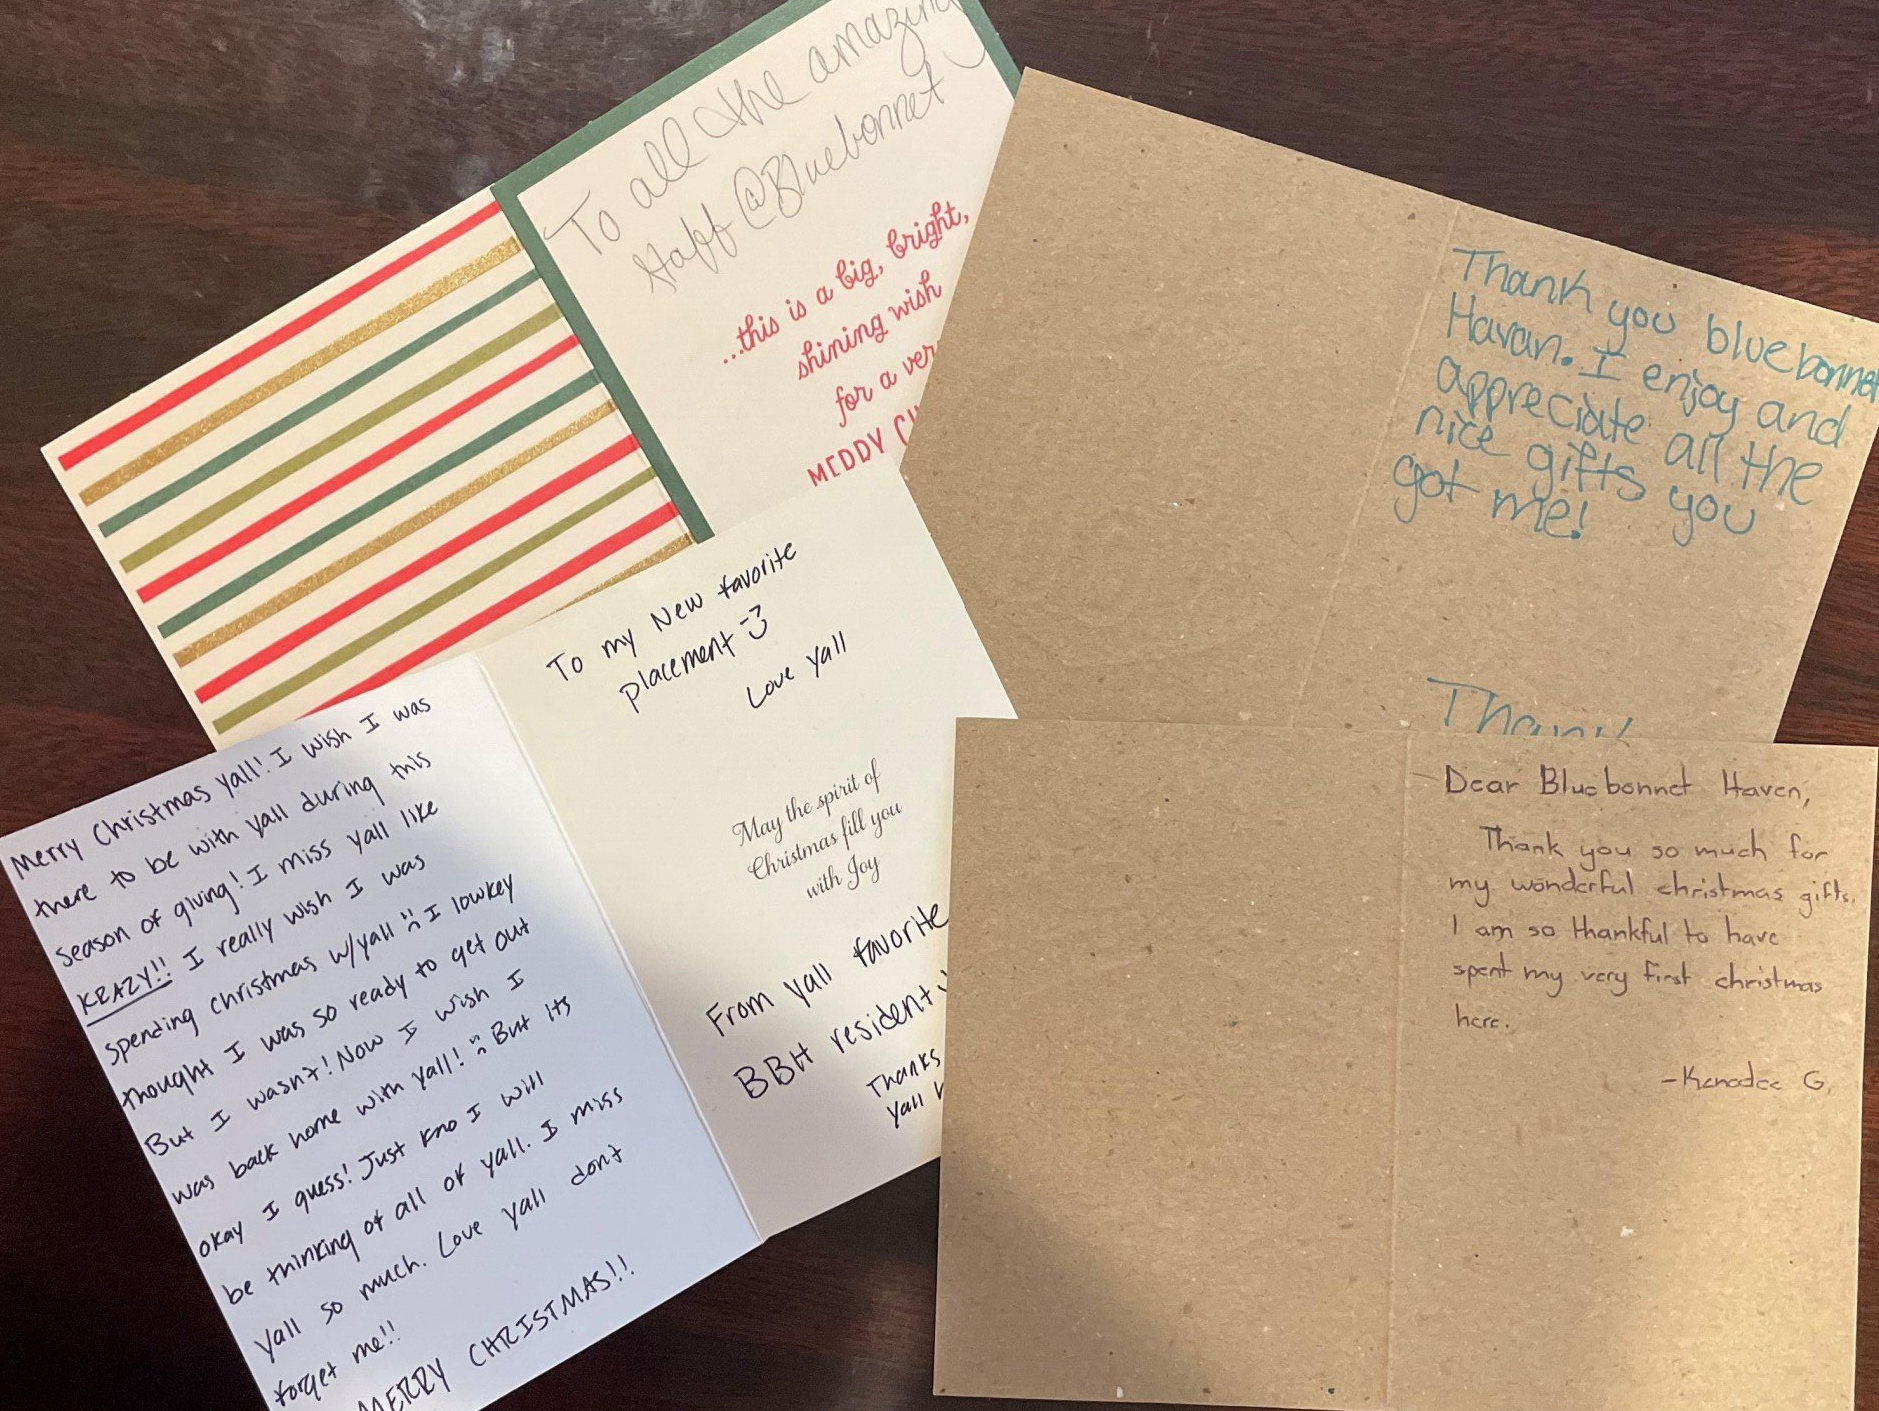 To all the amazing
staff @Bluebonnet
...this is a big, bright,
shining wish
for a
Thank you bluebonnet
Havan. I enjoy and
appreciate all the
nice gifts you
got me!
Thank
To my New favorite
placement
Love yall
May the spirit of
Christmas fill you
with Joy
From yall favorite
BBH resident
Thanks
Yall
Merry Christmas yall! I wish I was
there to be with yall during this
season of giving! I miss yall like
KRAZY!! I really wish I was
spending christmas w/yall I lowkey
thought I was so ready to get out
But I wasn't! Now I wish I
was back home with yall! But its
okay I guess! Just kno I will
be thinking of all of yall. I miss
Yall so much. Love yall dont
forget me!!
MERRY CHRISTMAS!!
Dear Bluebonnet Haven,
Thank you so much for
my wonderful christmas gifts.
I am so thankful to have
spent my very first christmas
here.
-Kenadee G.